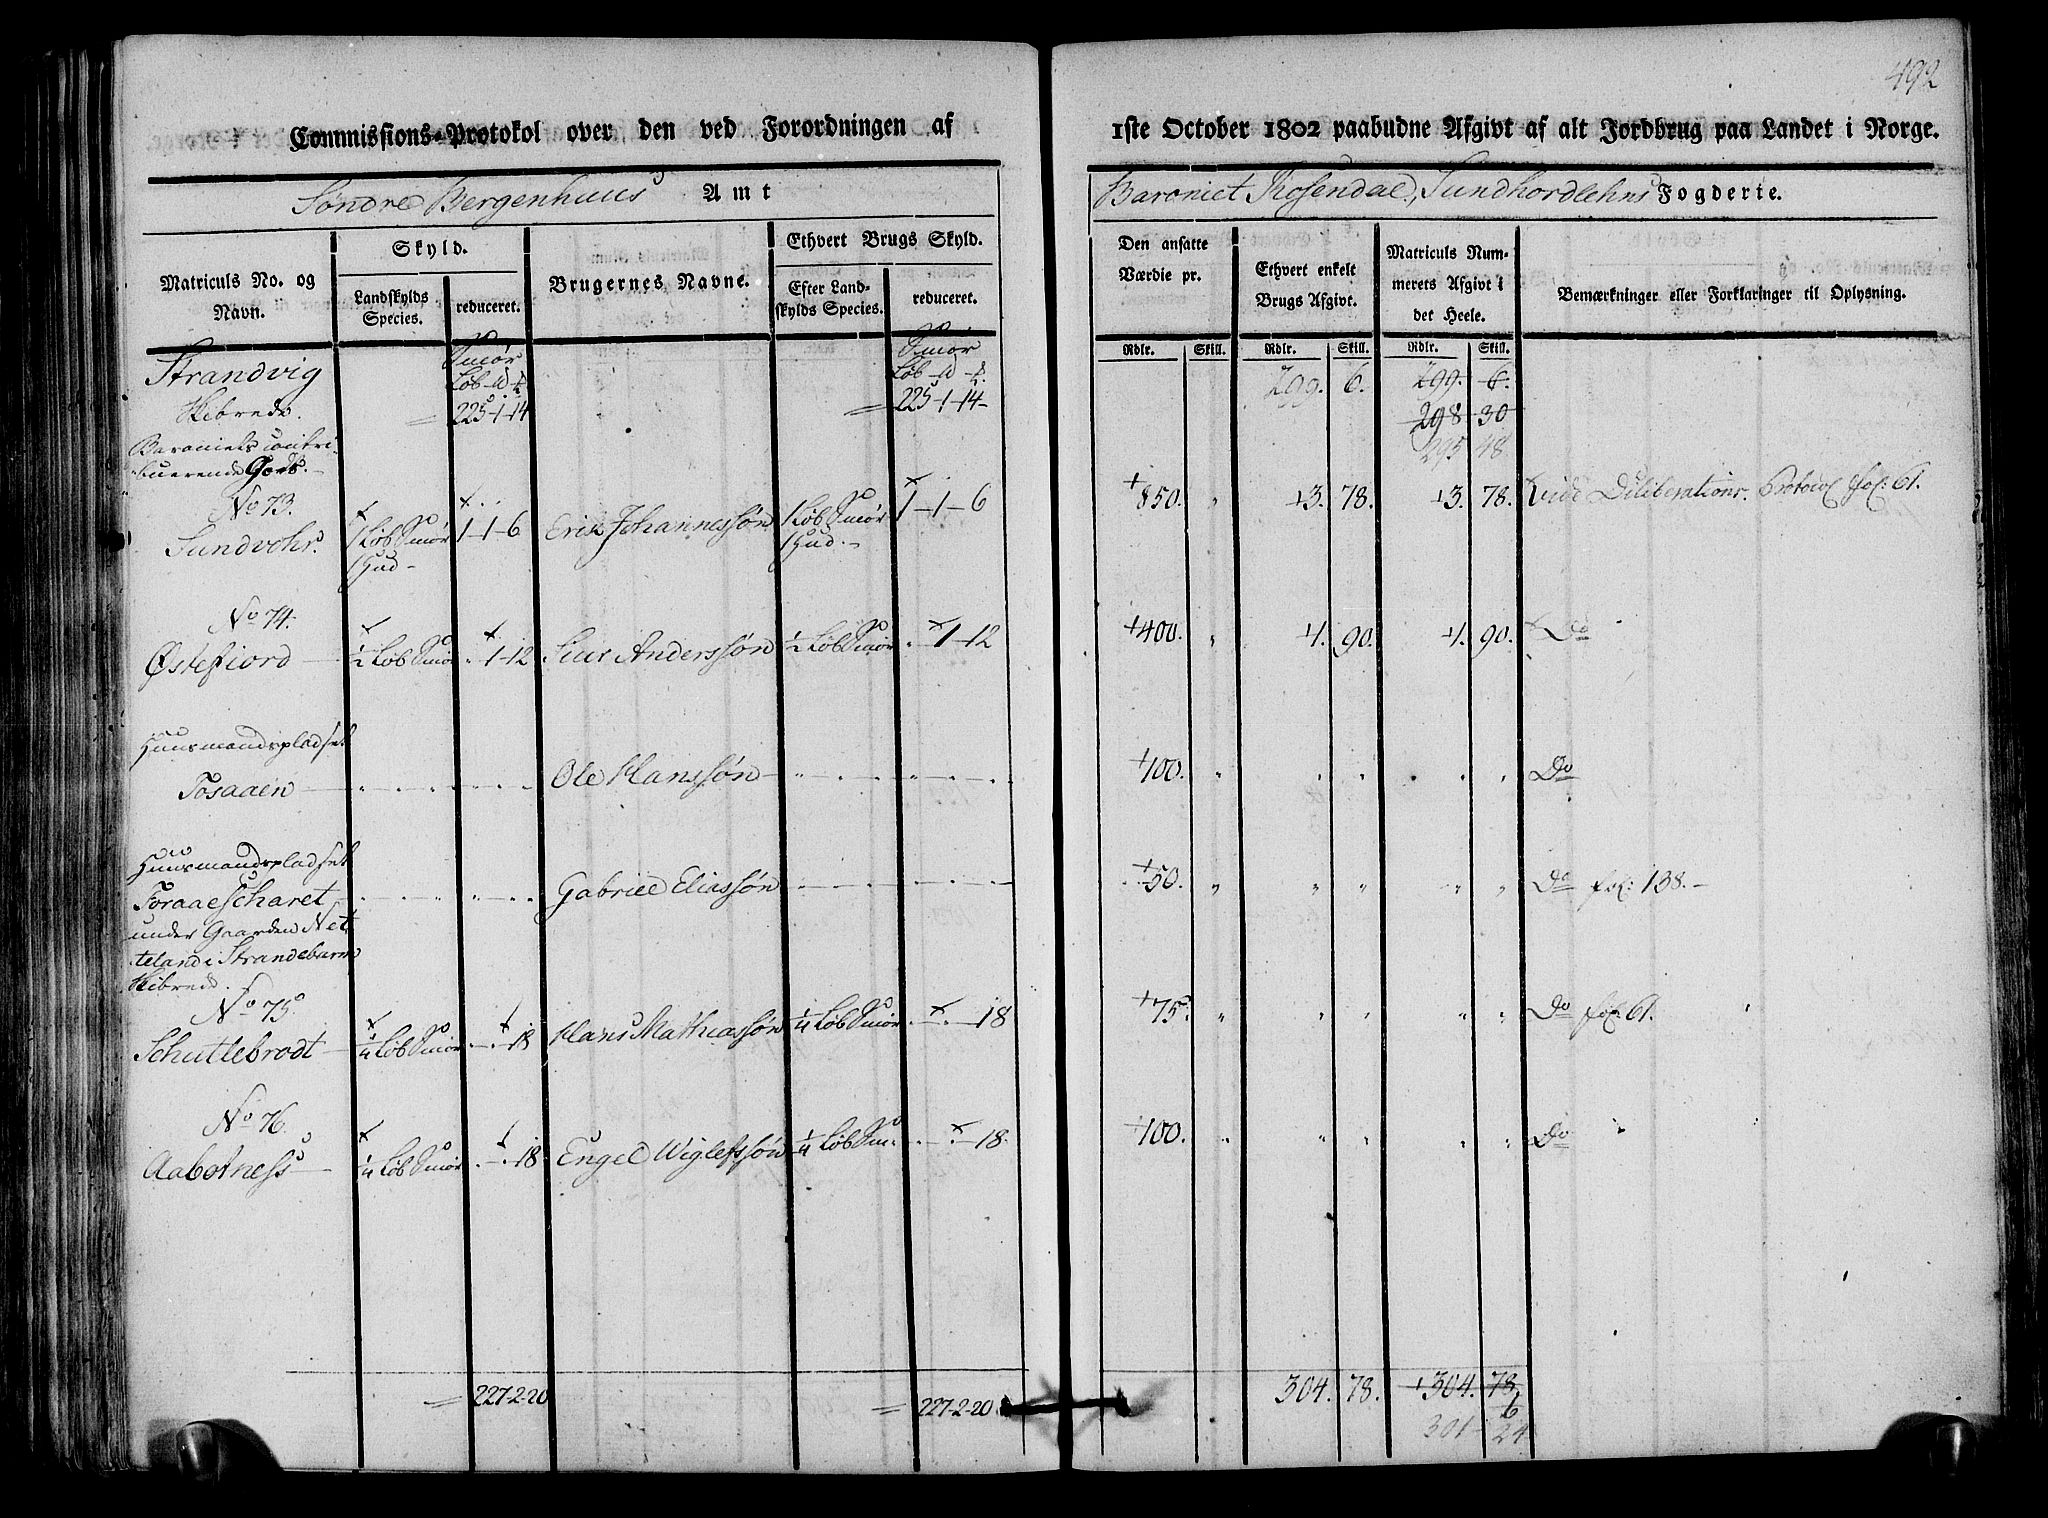 492
Commissions-Protokol over den ved Forordningen af
1ste October 1802 paabudne Afgivt af alt Jordbrug paa Landet i Norge.
Søndre Bergenhuus Amt
Baroniet Rosendal, Sundhordlehns Fogderie.
Matriculs No. og Navn.
Skyld.
Landskylds Species.
reduceret.
Brugernes Navne.
Ethvert Brugs Skyld.
Efter Landskylds Species.
reduceret.
Den ansatte Værdie pr.
Ethvert enkelt Brugs Afgivt.
Matriculs Nummerets Afgivt i det Heele.
Bemærkninger eller Forklaringer til Oplysning.
Rdlr. Skill. Rdlr. Skill. Rdlr. Skill.
Strandvig Smør Smør
Løb Løb
Skibrede. 225-1-14 225-1-14 299. 6. 299. 6.
298 30
295 48
Baroniets contri-
buerende Gods.
No 73.
Sundvohr 1 Løb Smør 1 Hud 1-1-6 Erik Johannessøn 1 Løb Smør 1 Hud 1-1-6 850. " 3. 78. 3. 78. Vide Deliberations Protocol fol: 61.
No 74.
Østefiord ½ Løb Smør 1-12 Siur Anderssøn ½ Løb Smør 1-12 400. " 1. 90. 1. 90. Do
Huusmandspladset
Tosaaen Ole Hanssøn 100. " " " " " Do
Huusmandspladset
Toraaescharet Gabriel Eliassøn 50. " " " " " Do fol: 138.
under Gaarden Net-
teland i Strandebarm
Skibrede.
No 75
Schutlebrodt ¼ Løb Smør 18 Hans Mathiassøn ¼ Løb Smør 18 75. " " " " " Do fol: 61.
No 76.
Aabotness ¼ Løb Smør 18 Engel Wiglefssøn ¼ Løb Sm: 18. 100. " " " " " Do
227-2-20 227-2-20 304. 78. 304. 78.
6
301 24